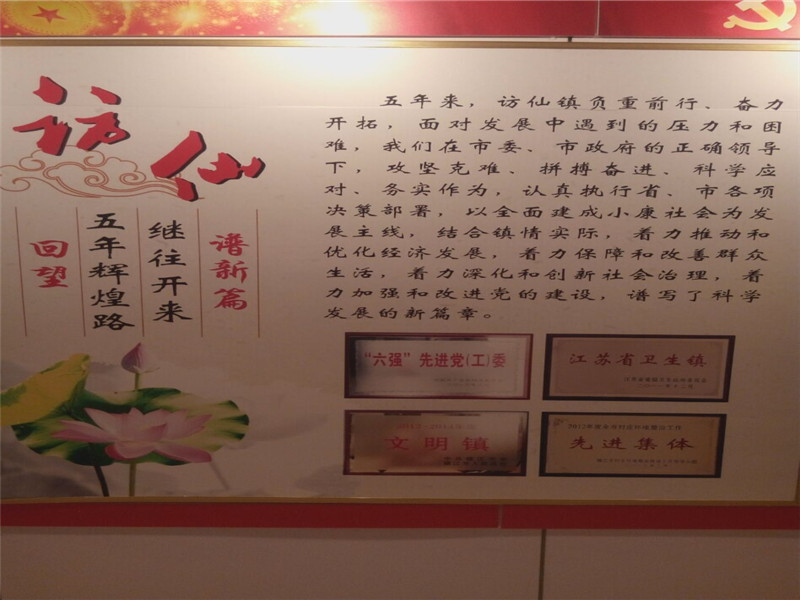 访仙
回望
五年辉煌路
继往开来
谱新篇
五年来，访仙镇负重前行、奋力
开拓，面对发展中遇到的压力和困
难，我们在市委、市政府的正确领导
下，攻坚克难、拼搏奋进、科学应
对、务实作为，认真执行省、市各项
决策部署，以全面建成小康社会为发
展主线，结合镇情实际，着力推动和
优化经济发展，着力保障和改善群众
生活，着力深化和创新社会治理，着
力加强和改进党的建设，谱写了科学
发展的新篇章。
“六强”先进党(工)委
江苏省卫生镇
文明镇
先进集体